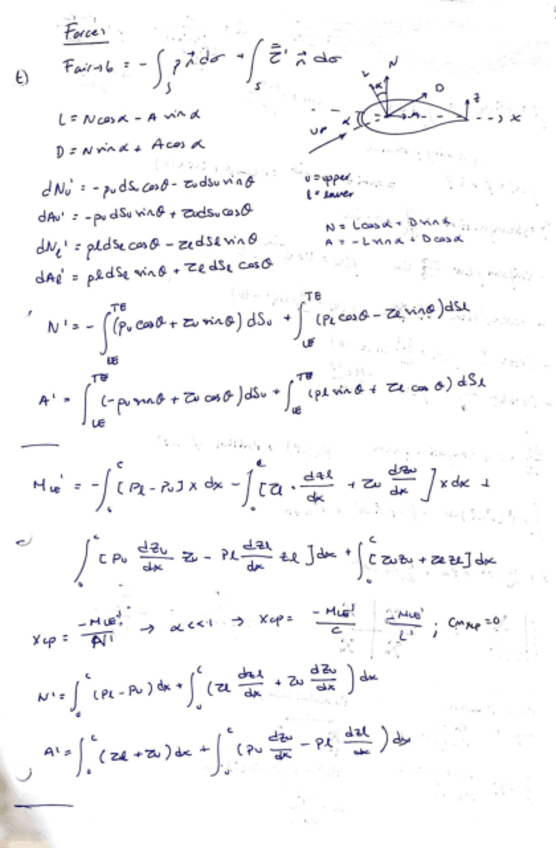 Forces
t)
F air→b = - ∫_S p n⃗ dσ + ∫_S τ̿' n⃗ dσ
L = N cos α - A sin α
D = N sin α + A cos α
L N D z α A x U∞
dNu' = -pu dSu cos θ - τu dSu sin θ
dAu' = -pu dSu sin θ + τu dSu cos θ
dNl' = pl dSl cos θ - τl dSl sin θ
dAl' = pl dSl sin θ + τl dSl cos θ
u = upper
l = lower
N = L cos α + D sin α
A = -L sin α + D cos α
N' = - ∫_LE^TE (pu cos θ + τu sin θ) dSu + ∫_LE^TE (pl cos θ - τl sin θ) dSl
A' = ∫_LE^TE (-pu sin θ + τu cos θ) dSu + ∫_LE^TE (pl sin θ + τl cos θ) dSl
M_LE' = - ∫_0^c [pl - pu] x dx - ∫_0^c [τl · dzl/dx + τu dzu/dx] x dx +
∫_0^c [pu dzu/dx zu - pl dzl/dx zl] dx + ∫_0^c [τu zu + τl zl] dx
xcp = -M_LE'/N' → α << 1 → xcp = -M_LE'/C -M_LE'/L' ; Cm xcp = 0
N' = ∫_0^c (pl - pu) dx + ∫_0^c (τl dzl/dx + τu dzu/dx) dx
A' = ∫_0^c (τl + τu) dx + ∫_0^c (pu dzu/dx - pl dzl/dx) dx